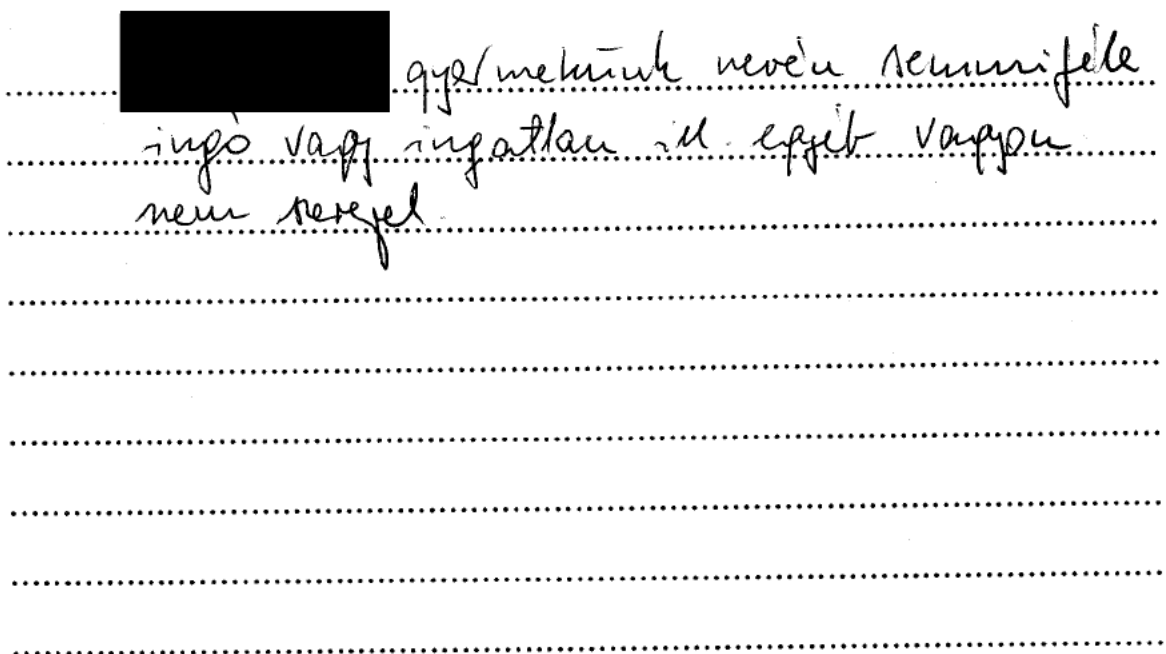 gyermekünk nevén semmiféle
ingó vagy ingatlan ill. egyéb vagyon
nem szerepel.